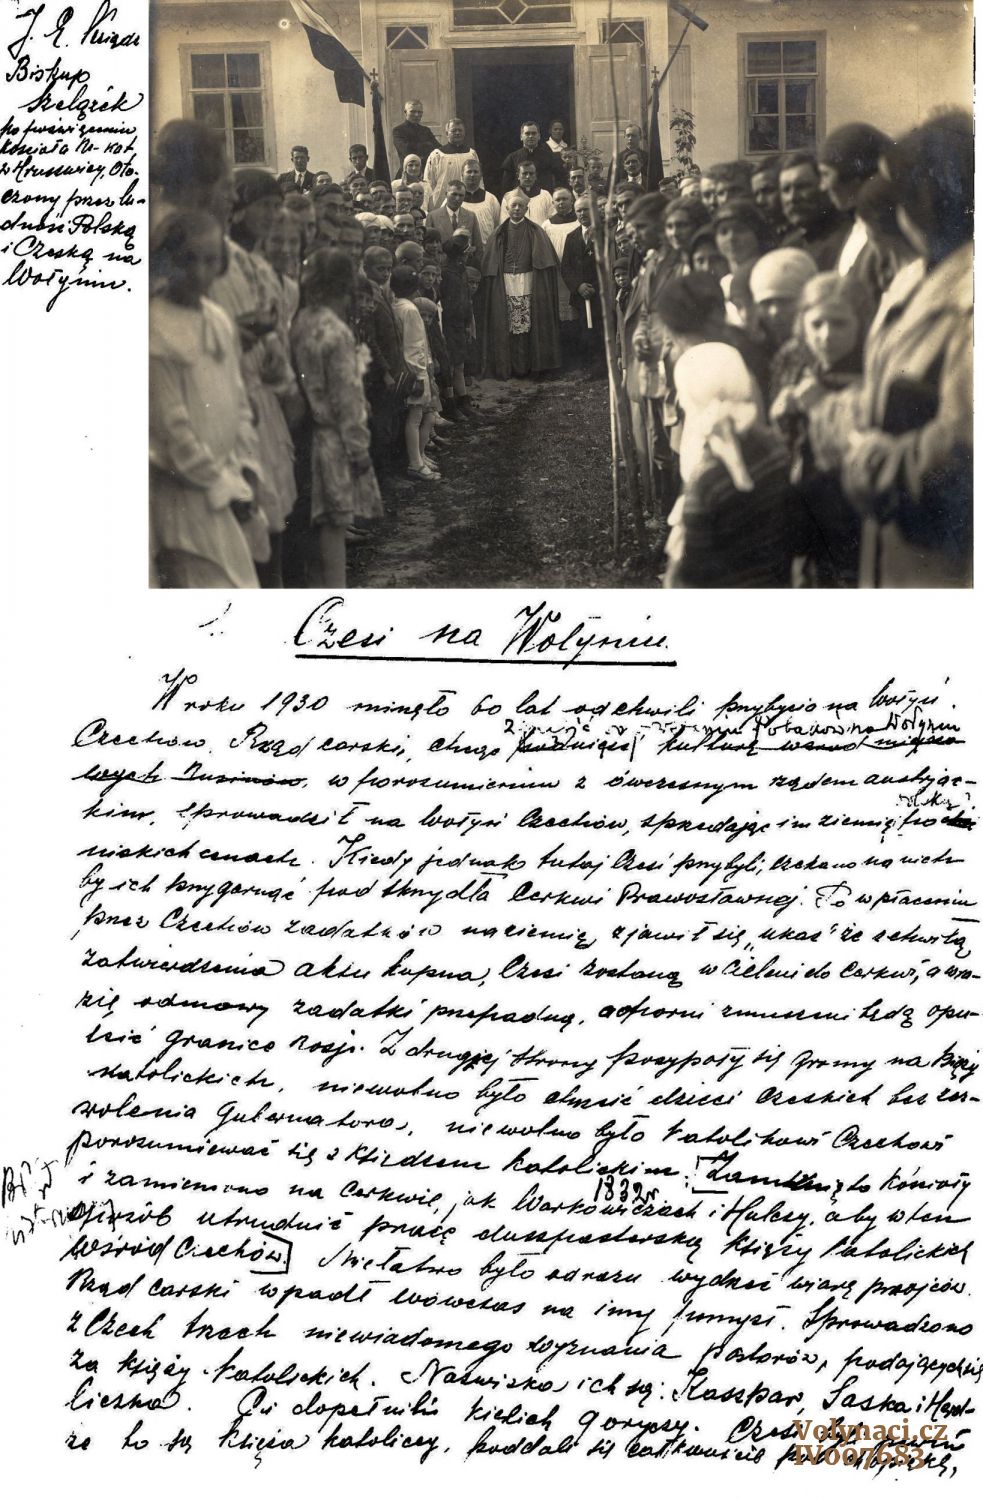 J. E. Ksiądz
Biskup
Szelążek
po poświęceniu
Kościoła Rz-kat.
w Hruszwicy, oto-
czony przez lu-
dność Polską
i Czeską na
Wołyniu.
Czesi na Wołyniu.
W roku 1930 minęło 60 lat od chwili przybycia na Wołyń
Polaków na Wołyniu
Czechów. Rząd carski, chcąc podnieść kulturę wśród miejsco
wych Rusinów, w porozumieniu z ówczesnym rządem austrjac-
kim, sprowadził na Wołyń Czechów, sprzedając im ziemię po
niskich cenach. Kiedy jednak tutaj Czesi przybyli, czekano na nich
by ich przygarnąć pod skrzydła Cerkwi Prawosławnej. Po wpłaceniu
przez Czechów zadatków na ziemię, zjawił się "ukaz" że z chwilą
zatwierdzenia aktu kupna, Czesi zostaną wcieleni do Cerkwi, a w ra-
zie odmowy zadatki przepadną, a oporni zmuszeni będą opu-
ścić granice Rosji. Z drugiej strony posypały się gromy na Księży
Katolickich, niewolno było chrzcić dzieci czeskich bez zez-
wolenia Gubernatora, niewolno było Katolikowi Czechowi
porozumiewać się z Księdzem Katolickim. Zamknięto Kościoły
1832 r
i zamieniono na cerkwie, jak Warkowiczach i Hulczy, aby w ten
sposób utrudnić pracę duszpasterską Księży Katolickich
wśród Czechów. Niełatwo było odrazu wydrzeć wiarę praojców.
Rząd carski wpadł wówczas na inny pomysł. Sprowadzono
z Czech trzech niewiadomego wyznania pastorów, podających się
za Księży Katolickich. Nazwiska ich są: Kaszpar, Saska i Hrd-
liczka. Ci dopełnili kielich goryczy. Czesi
że to są Księża katoliccy, poddali się całkowicie pod ich opiekę,
Volynaci.cz
IV007683